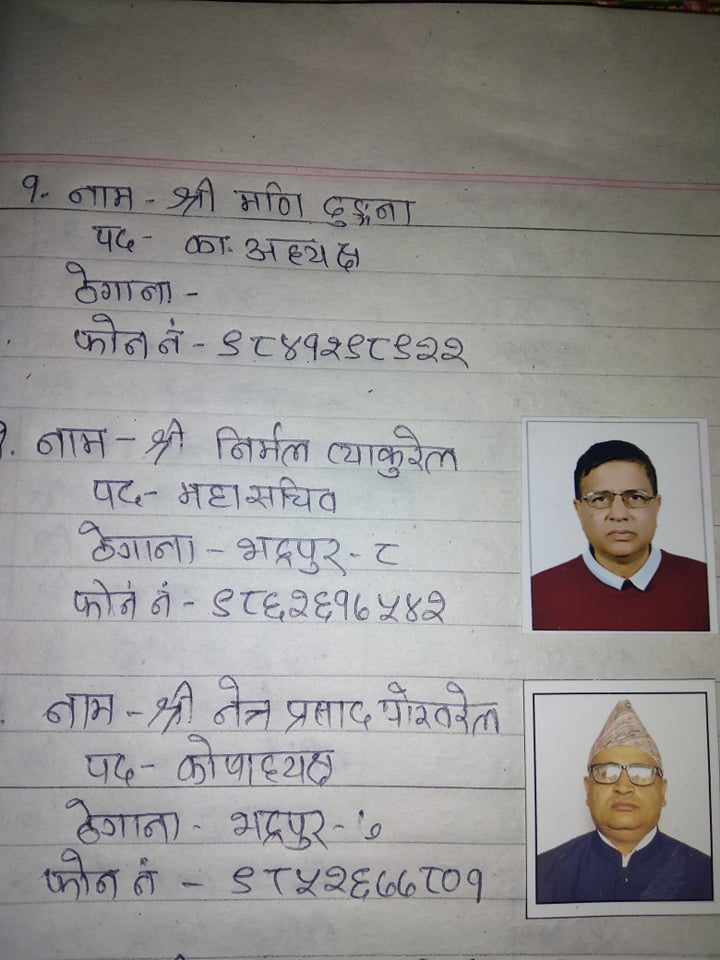 १. नाम - श्री मणि ढुङ्गना
पद - का. अध्यक्ष
ठेगाना -
फोन नं - ९८४१२९८९२२
नाम - श्री निर्मल त्याकुरेल
पद - महासचिव
ठेगाना - भद्रपुर - ८
फोनं नं - ९८६२६१७५४२
नाम - श्री नेत्र प्रसाद पोखरेल
पद - कोषाध्यक्ष
ठेगाना - भद्रपुर - ७
फोन नं - ९८५२६७७८०१